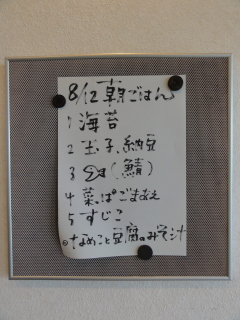 8/12 朝ごはん
1 海苔
2 玉子、納豆
3 (鯖)
4 菜っぱごまあえ
5 すじこ
◎なめこと豆腐のみそ汁